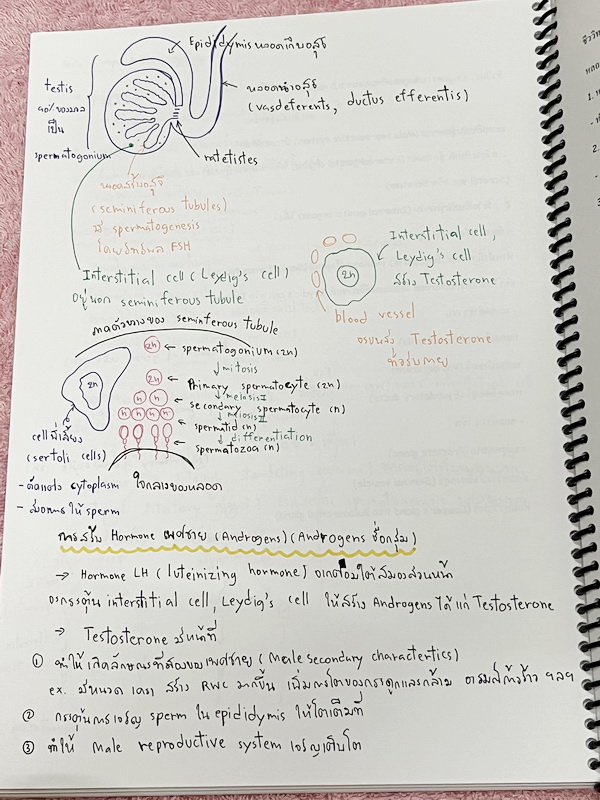 Epididymis หลอดเก็บอสุจิ
testis
90% ของมวล
เป็น
spermatogonium
หลอดนำอสุจิ
(vasdeferents, ductus efferentis)
ratetistes
หลอดสร้างอสุจิ
(seminiferous tubules)
มี spermatogenesis
โดยอิทธิพล FSH
Interstitial cell (Leydig's cell)
อยู่นอก seminiferous tubule
Interstitial cell,
Leydig's cell
สร้าง Testosterone
2n
blood vessel
Testosterone
ภาคตัวขวางของ seminferous tubule
2n ← spermatogonium (2n)
↓ mitosis
2n ← Primary spermatocyte (2n)
↓ meiosis I
n n ← secondary spermatocyte (n)
↓ meiosis II
n n n n ← spermatid (n)
↓ differentiation
← spermatozoa (n)
2n
cell พี่เลี้ยง
(sertoli cells)
- cytoplasm
ใจกลางของหลอด
ให้ sperm
การสร้าง Hormone เพศชาย (Androgens) (Androgens ชื่อกลุ่ม)
→ Hormone LH (luteinizing hormone) จากต่อมใต้สมองส่วนหน้า
จะกระตุ้น interstitial cell, Leydig's cell ให้สร้าง Androgens ได้แก่ Testosterone
→ Testosterone มีหน้าที่
① ทำให้เกิดลักษณะที่สองของเพศชาย (Male secondary charactertics)
ex. มีหนวด เครา สร้าง RBC มากขึ้น เพิ่มการโตของกระดูกและกล้าม อารมณ์ก้าวร้าว ฯลฯ
② กระตุ้นการเจริญ sperm ใน epididymis ให้โตเต็มที่
③ ทำให้ Male reproductive system เจริญเติบโต